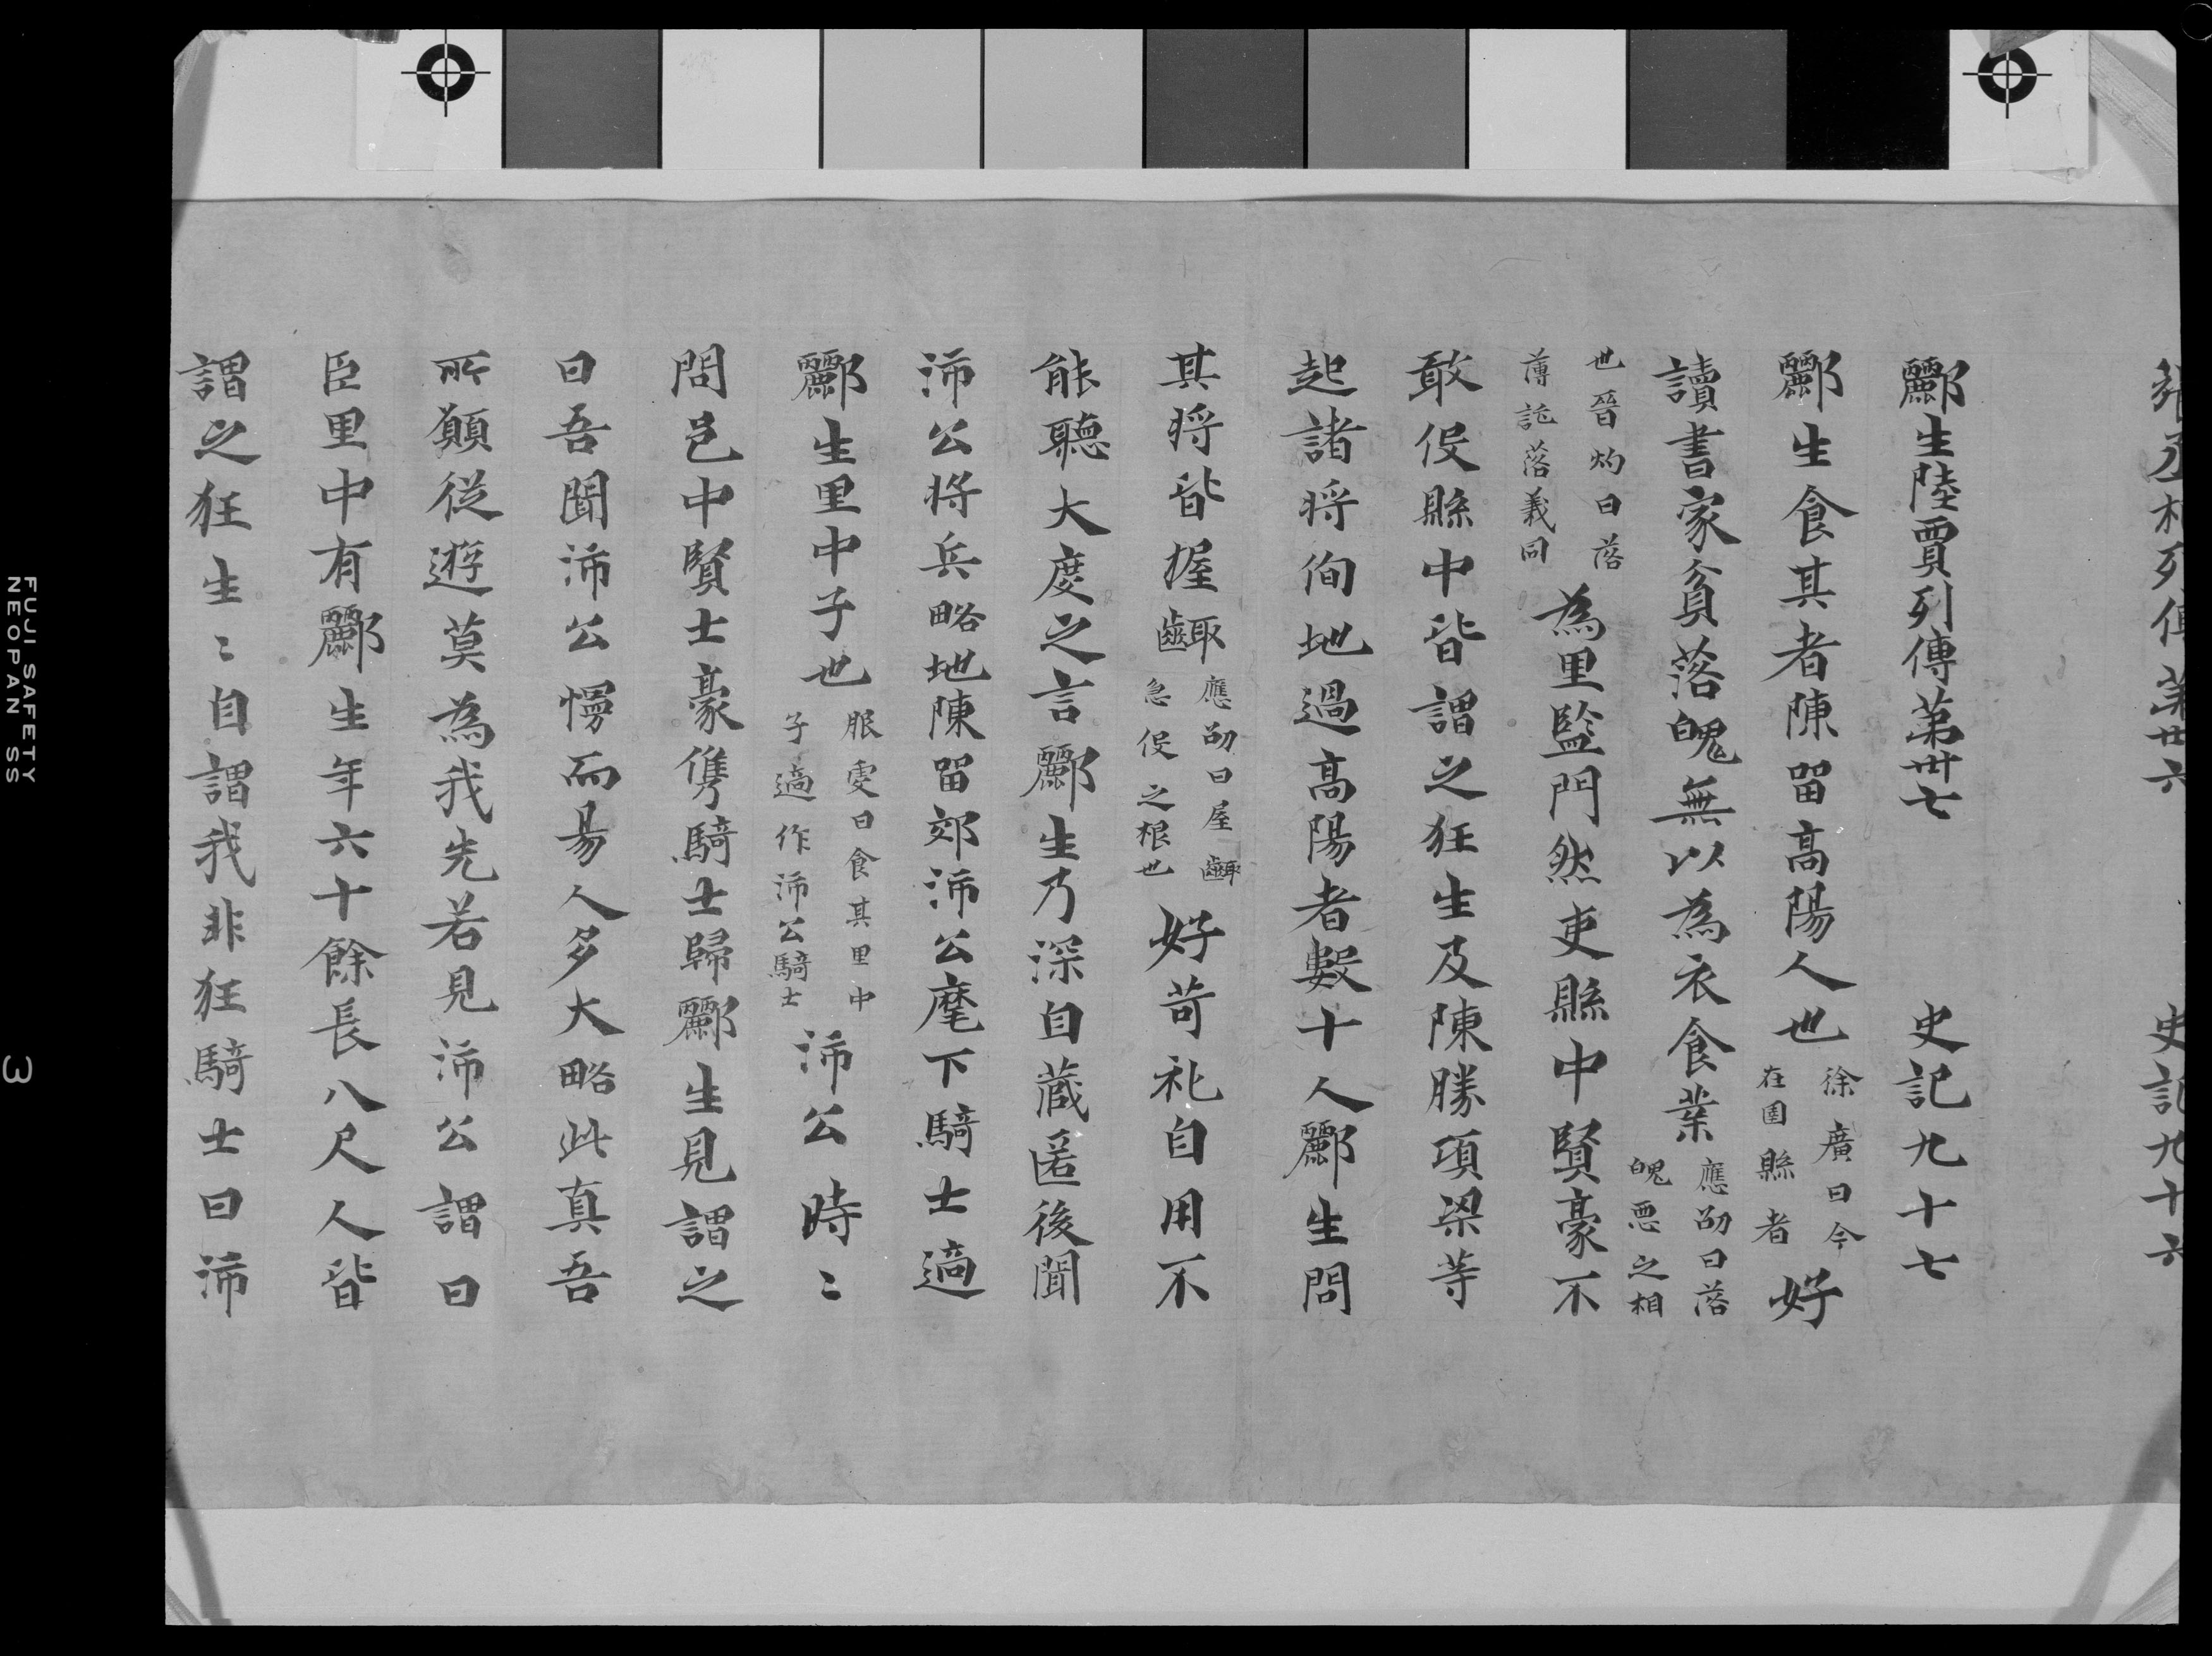 丞相列傳第卅六 史記九十六
酈生陸賈列傳第卅七 史記九十七
酈生食其者陳留高陽人也 徐廣曰今在圉縣者 好
讀書家貧落魄無以為衣食業 應劭曰落魄悪之相
也晉灼曰落薄託落義同 為里監門然吏縣中賢豪不
敢役縣中皆謂之狂生及陳勝項梁等
起諸将徇地過高陽者數十人酈生問
其将皆握齱 應劭曰屋齱急促之根也 好苛礼自用不
能聽大度之言酈生乃深自蔵匿後聞
沛公将兵略地陳留郊沛公麾下騎士適
酈生里中子也 服䖍曰食其里中子適作沛公騎士 沛公時〻
問邑中賢士豪儁騎士歸酈生見謂之
曰吾聞沛公慢而昜人多大略此真吾
所願従遊莫為我先若見沛公謂曰
臣里中有酈生年六十餘長八尺人皆
謂之狂生〻自謂我非狂騎士曰沛
FUJI SAFETY
NEOPAN SS
3